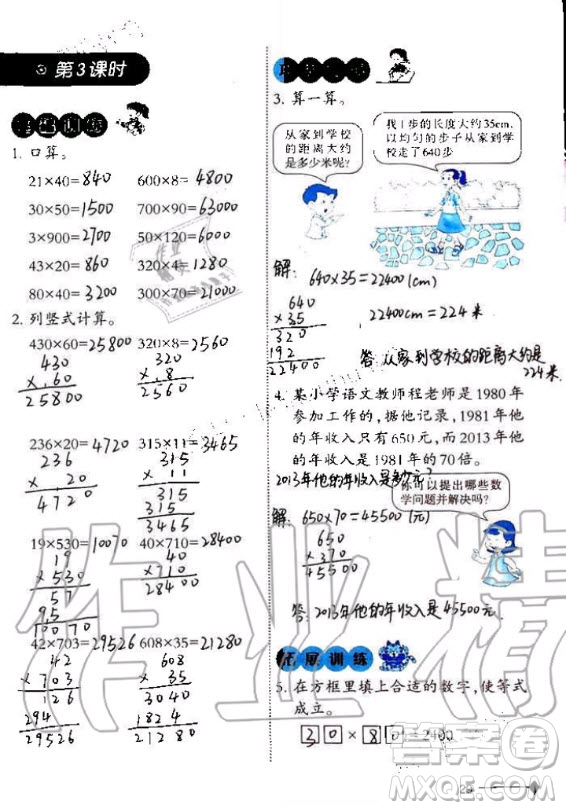 第3课时
基础训练
1. 口算。
21×40=840 600×8=4800
30×50=1500 700×90=63000
3×900=2700 50×50=2500
43×20=860 320×4=1280
80×40=3200 300×70=21000
2. 列竖式计算。
430×60=25800 320×8=2560
430 320
×.60 ×.8
25800 2560
236×20=4720 315×11=3465
236 315
× 20 × 11
4720 315
315
3465
19×530=10070 40×710=28400
19 40
×530 ×710
57 28400
95
10070
42×703=29526 608×35=21280
42 608
×703 ×35
126 3040
294 1824
29526 21280
3. 算一算。
从家到学校
的距离大约
是多少米呢?
我1步的长度大约35cm,
以均匀的步子从家到学
校走了640步
解: 640×35=22400(cm)
640
×35
320
192
22400
22400cm=224米
答:从家到学校的距离大约是
224米.
4. 某小学语文教师程老师是1980年
参加工作的,据他记录,1981年他
的年收入只有650元,而2013年他
的年收入是1981年的70倍。
2013年他的年收入是多少元?
你可以提出哪些数
学问题并解决吗?
解: 650×70=45500(元)
650
×70
45500
答:2013年他的年收入是45500元.
拓展训练
5. 在方框里填上合适的数字,使等式
成立。
30×80=2400
作业精
答案圈
MXQE.COM